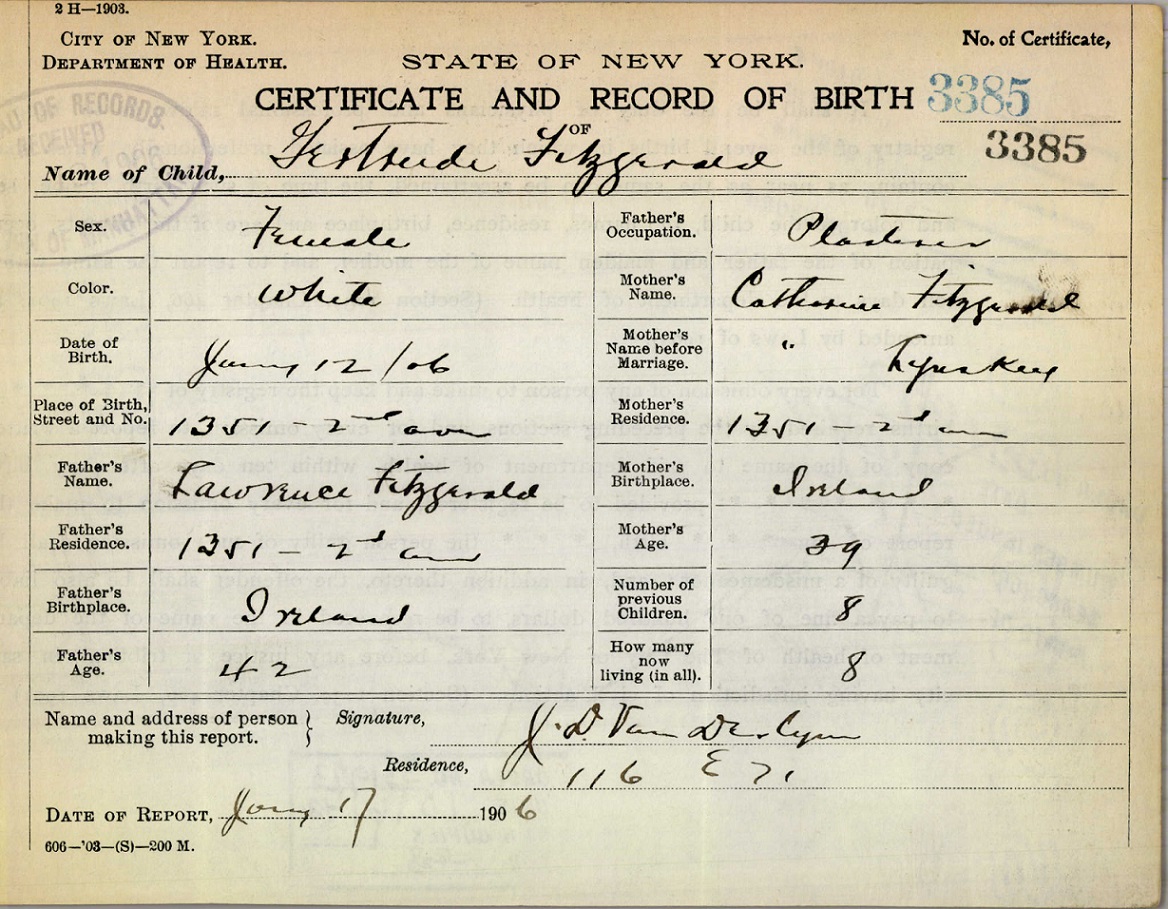 2 H—1903.
CITY OF NEW YORK.
DEPARTMENT OF HEALTH.
No. of Certificate,
STATE OF NEW YORK.
CERTIFICATE AND RECORD OF BIRTH
3385
OF
3385
Name of Child, Gertrude Fitzgerald
Sex. Female
Father's Occupation. Plasterer
Color. White
Mother's Name. Catharine Fitzgerald
Date of Birth. Jany 12/06
Mother's Name before Marriage. " Lynskey
Place of Birth, Street and No. 1351 – 2d ave
Mother's Residence. 1351 – 2d av
Father's Name. Lawrence Fitzgerald
Mother's Birthplace. Ireland
Father's Residence. 1351 – 2d av
Mother's Age. 39
Father's Birthplace. Ireland
Number of previous Children. 8
Father's Age. 42
How many now living (in all). 8
Name and address of person making this report.
Signature, J. D. Van Derlyn
Residence, 116 E 71
DATE OF REPORT, Jany 17 1906
606—'03—(S)—200 M.